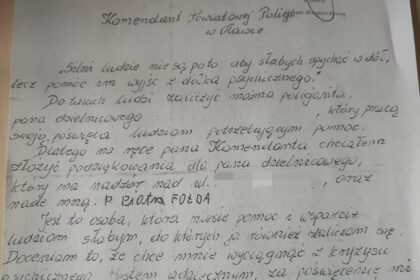 Komendant Powiatowej Policji
w Iławie.
„Silni ludzie nie są po to: aby słabych spychać w dół,
lecz pomóc im wyjść z dołka psychicznego."
Do takich ludzi zaliczyć można policjanta,
pana dzielnicowego , który pracą
swoją poświęca ludziom potrzebującym pomoc.
Dlatego na ręce pana Komendanta chciałem
złożyć podziękowania dla pana dzielnicowego,
który ma nadzór nad ul. oraz
nade mną. P. Piotra FOŁDA
Jest to osoba, która niesie pomoc i wsparcie
ludziom słabym, do których ja również zaliczam się.
Doceniam to, że chce mnie wyciągnąć z kryzysu
psychicznego. Jestem wdzięcznym, za poświęcenie